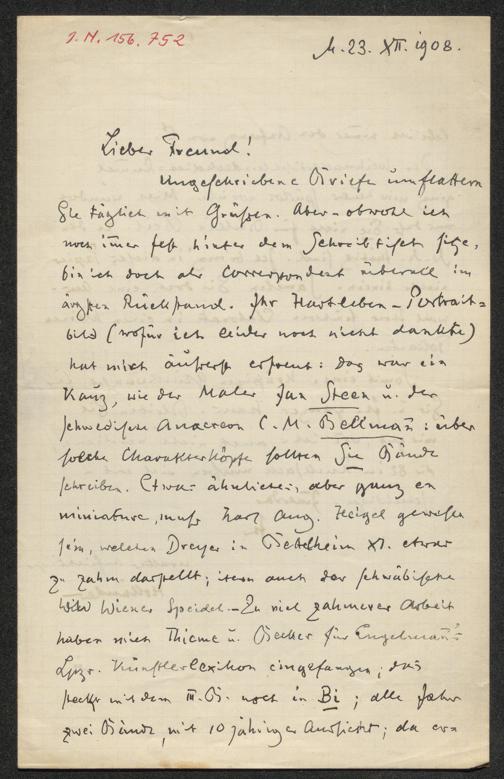 I. N. 156.752
M. 23. XII. 1908.
Lieber Freund!
Ungeschriebene Briefe umflattern
Sie täglich mit Grüßen. Aber – obwol ich
noch im̅er fest hinter dem Schreibtisch sitze,
bin ich doch als Correspondent überall im
ärgsten Rückstand. Ihr Hartleben-Portrait-
bild (wofür ich leider noch nicht dankte)
hat mich äußerst erfreut: das war ein
Kauz, wie der Maler Jan Steen u. der
schwedische Anacreon C. M. Bellman̅: über
solche Charakterköpfe sollten Sie Bände
schreiben. Etwas ähnliches, aber ganz en
miniature, muß Karl Aug. Heigel gewesen
sein, welchen Dreyer in Bettelheim XI. etwas
zu zahm darstellt; item auch der schwäbische
Wiener Speidel. – Zu viel zahmerer Arbeit
haben mich Thieme u. Becker für Engelman̅'s
Lpzr. Künstlerlexikon eingefangen; das
steckt mit dem III. B. noch in Bi; alle Jahr
zwei Bände, mit 10 jähriger Aussicht; da